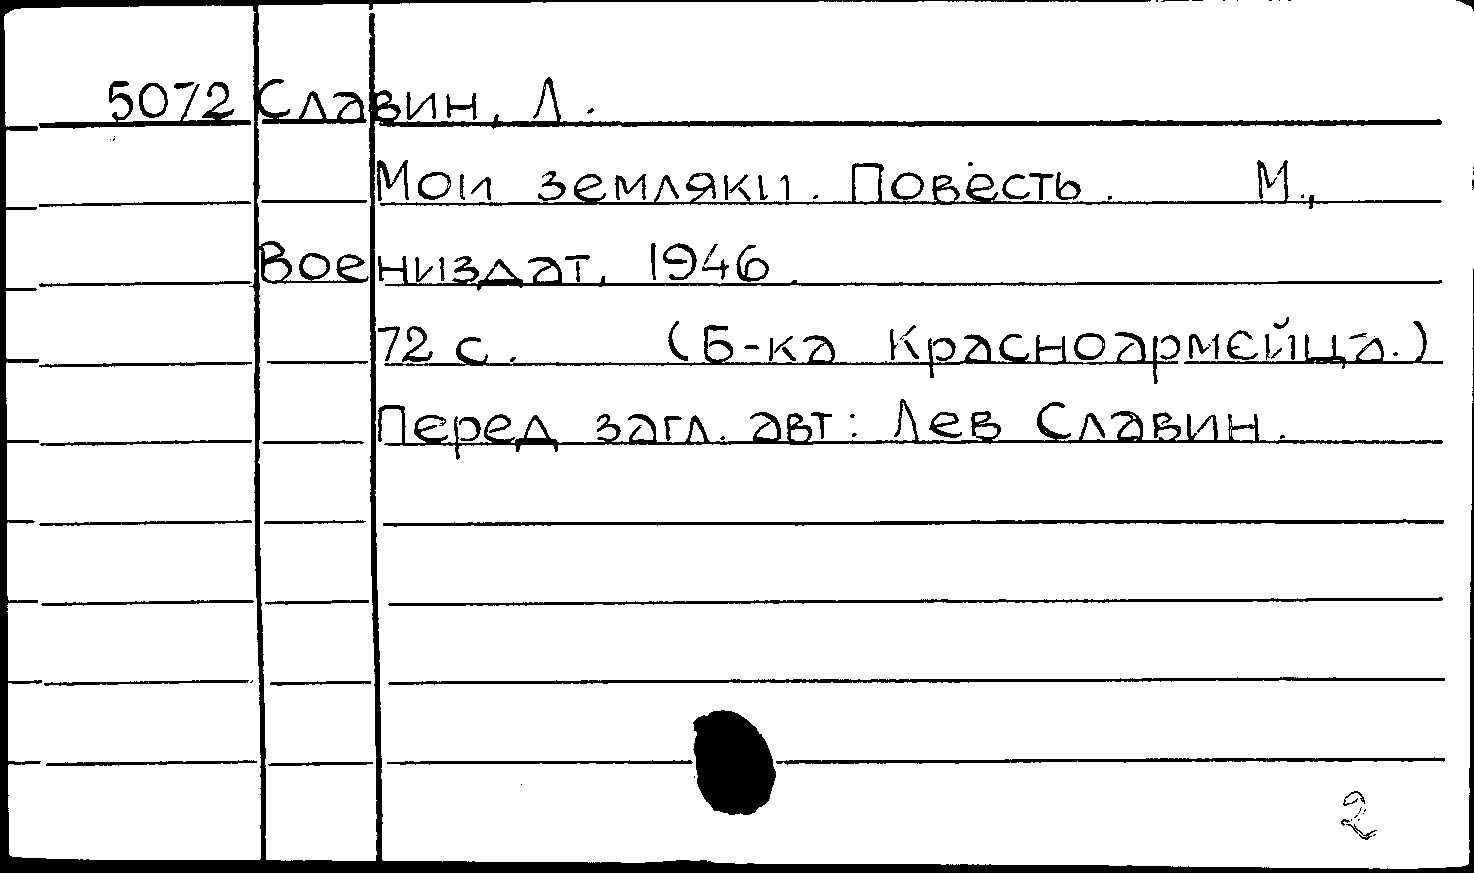 5072 Славин, Л.
Мои земляки. Повесть. М.,
Воениздат, 1946.
72 с. (Б-ка Красноармейца.)
Перед загл. авт: Лев Славин.
2